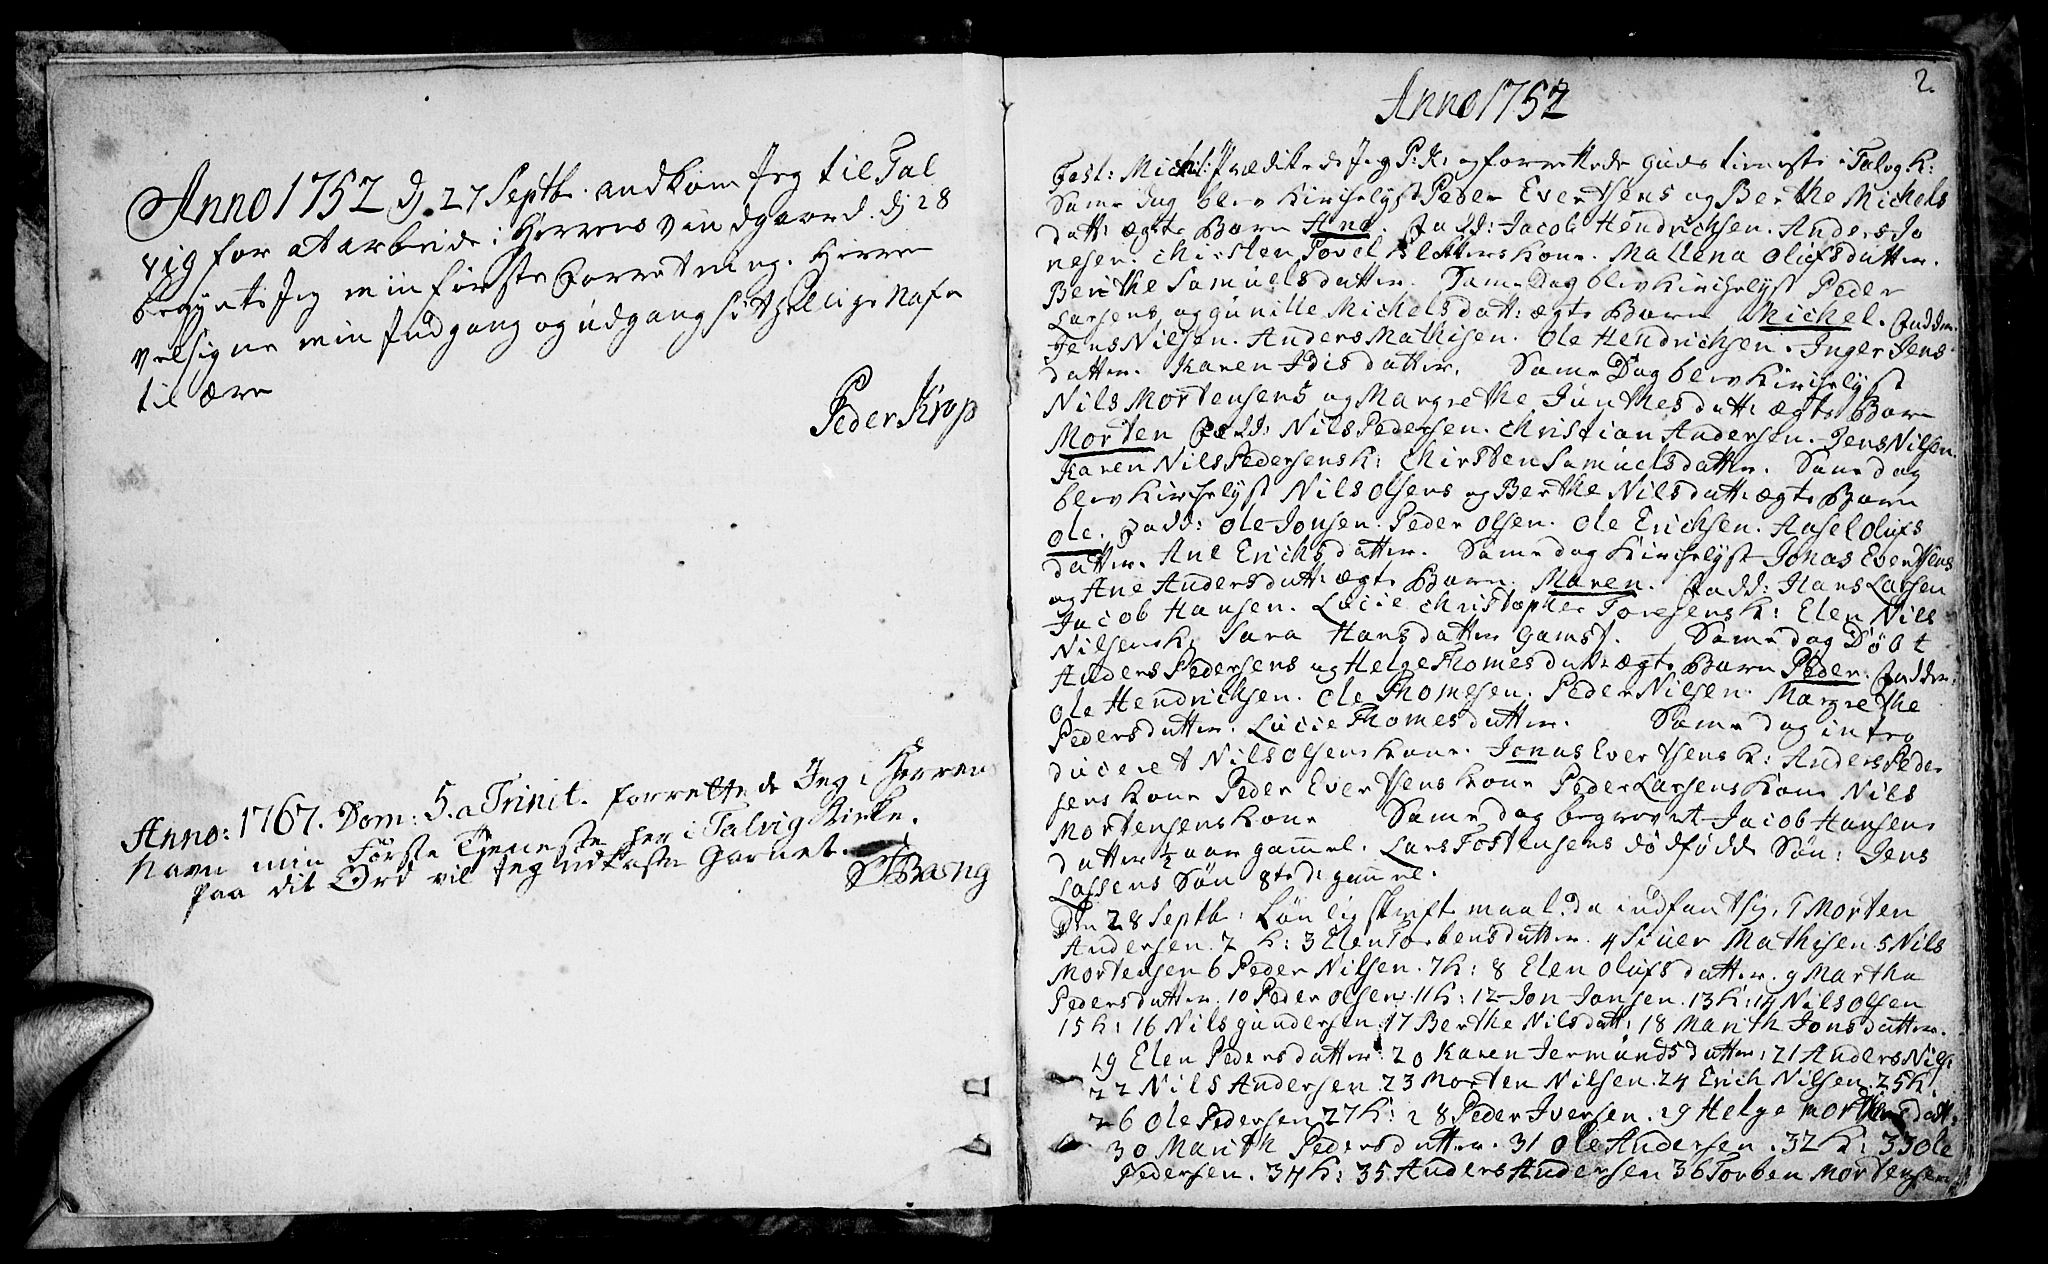 Anno 1752 d. 27 Septb. andkom Jeg til Tal
vig for at arbeide i Herrens Viindgaard. d. 28
begynte Jeg min første Forretning. Herre
velsigne min Indgang og udgang sit hellige Nafn
til ære
Peder Krop
Anno: 1767. Dom: 5. a Trinit. forrettede Jeg i Herrens
Navn min Første Tjeneste her i Talvig Kirke.
paa dit Ord vil Jeg udkaste Garnet.
2.
Anno 1752
Fest: Mich: Prædikede Jeg P:K: og forrettede guds tieneste i Talvig K:
Same dag blev Kirchelyst Peder Evertsens og Berthe Michels
datt: ægte Barn Ane. Fadd: Jacob Hendrichsen. Anders Jo
nesen. Chirsten Povel Kone. Mallena Olufsdatter.
Berithe Samuelsdatter. Same Dag blev Kirchelyst Peder
Larsens og gunille Michelsdatt: ægte Barn Michel. Fadder.
Jens Nilsen. Anders Mathisen. Ole Hendrichsen. Inger Jens
datter. Karen Idisdatter. Same Dag blev Kirchelyst
Nils Mortensens og Margrethe Junthesdatt: ægte Barn
Morten Fadd: Nils Pedersen. Christian Andersen. Jens Nilsen.
Karen Nils Pedersens K: Chirsten Samuelsdatter. Same dag
blev Kirchelyst Nils Olsens og Berthe Nilsdatt: ægte Barn
Ole. Fadd: Ole Jonsen. Peder Olsen. Ole Erichsen. Aasel Olufs
datter. Ane Erichsdatter. Same dag Kirchelyst Jonas Evertsens
og Ane Andersdatt: ægte Barn. Maren. Fadd: Hans Larsen
Jacob Hansen. Lucie Christopher Toresens K: Elen Nils
Nilsens K: Sara Hansdatter gamst. Same dag Døbt
Anders Pedersens og Helge Thomesdatt: ægte Barn Peder. Fadder:
Ole Hendrichsen. Ole Thomesen. Peder Nilsen. Margrethe
Pedersdatter. Lucie Thomesdatter. Same dag intro
duceret Nils Olsens Kone. Jonas Evertsens K: Anders Peder
sens Kone Peder Evertsens Kone Peder Larsens Kone Nils
Mortensens Kone Same dag begravet Jacob Hansens
datter 1/2 aar gammel. Lars Tostensens dødfødde Søn: Jens
Lassens Søn 8te d: gammel.
Den 28 Septb: Lønlig skriftemaal. da indfant sig, 1 Morten
Andersen. 2 K: 3 Elen Torbensdatter. 4 Siuer Mathisen 5 Nils
Mortensen 6 Peder Nilsen. 7 K: 8 Elen Olufsdatter. 9 Martha
Pedersdatter. 10 Peder Olsen. 11 K: 12 Jon Jonsen. 13 K: 14 Nils Olsen
15 K: 16 Nils gundersen 17 Berthe Nilsdatt: 18 Marith Jonsdatter.
19 Elen Pedersdatter. 20 Karen Jermundsdatter: 21 Anders Nils:
22 Nils Andersen. 23 Morten Nilsen. 24 Erich Nilsen. 25 K:
26 Ole Pedersen 27 K: 28 Peder Iversen. 29 Helge Mortensdatt:
30 Marith Pedersdatter. 31 Ole Andersen. 32 K: 33 Ole
Pedersen. 34 K: 35 Anders Andersen 36 Torben Mortensen